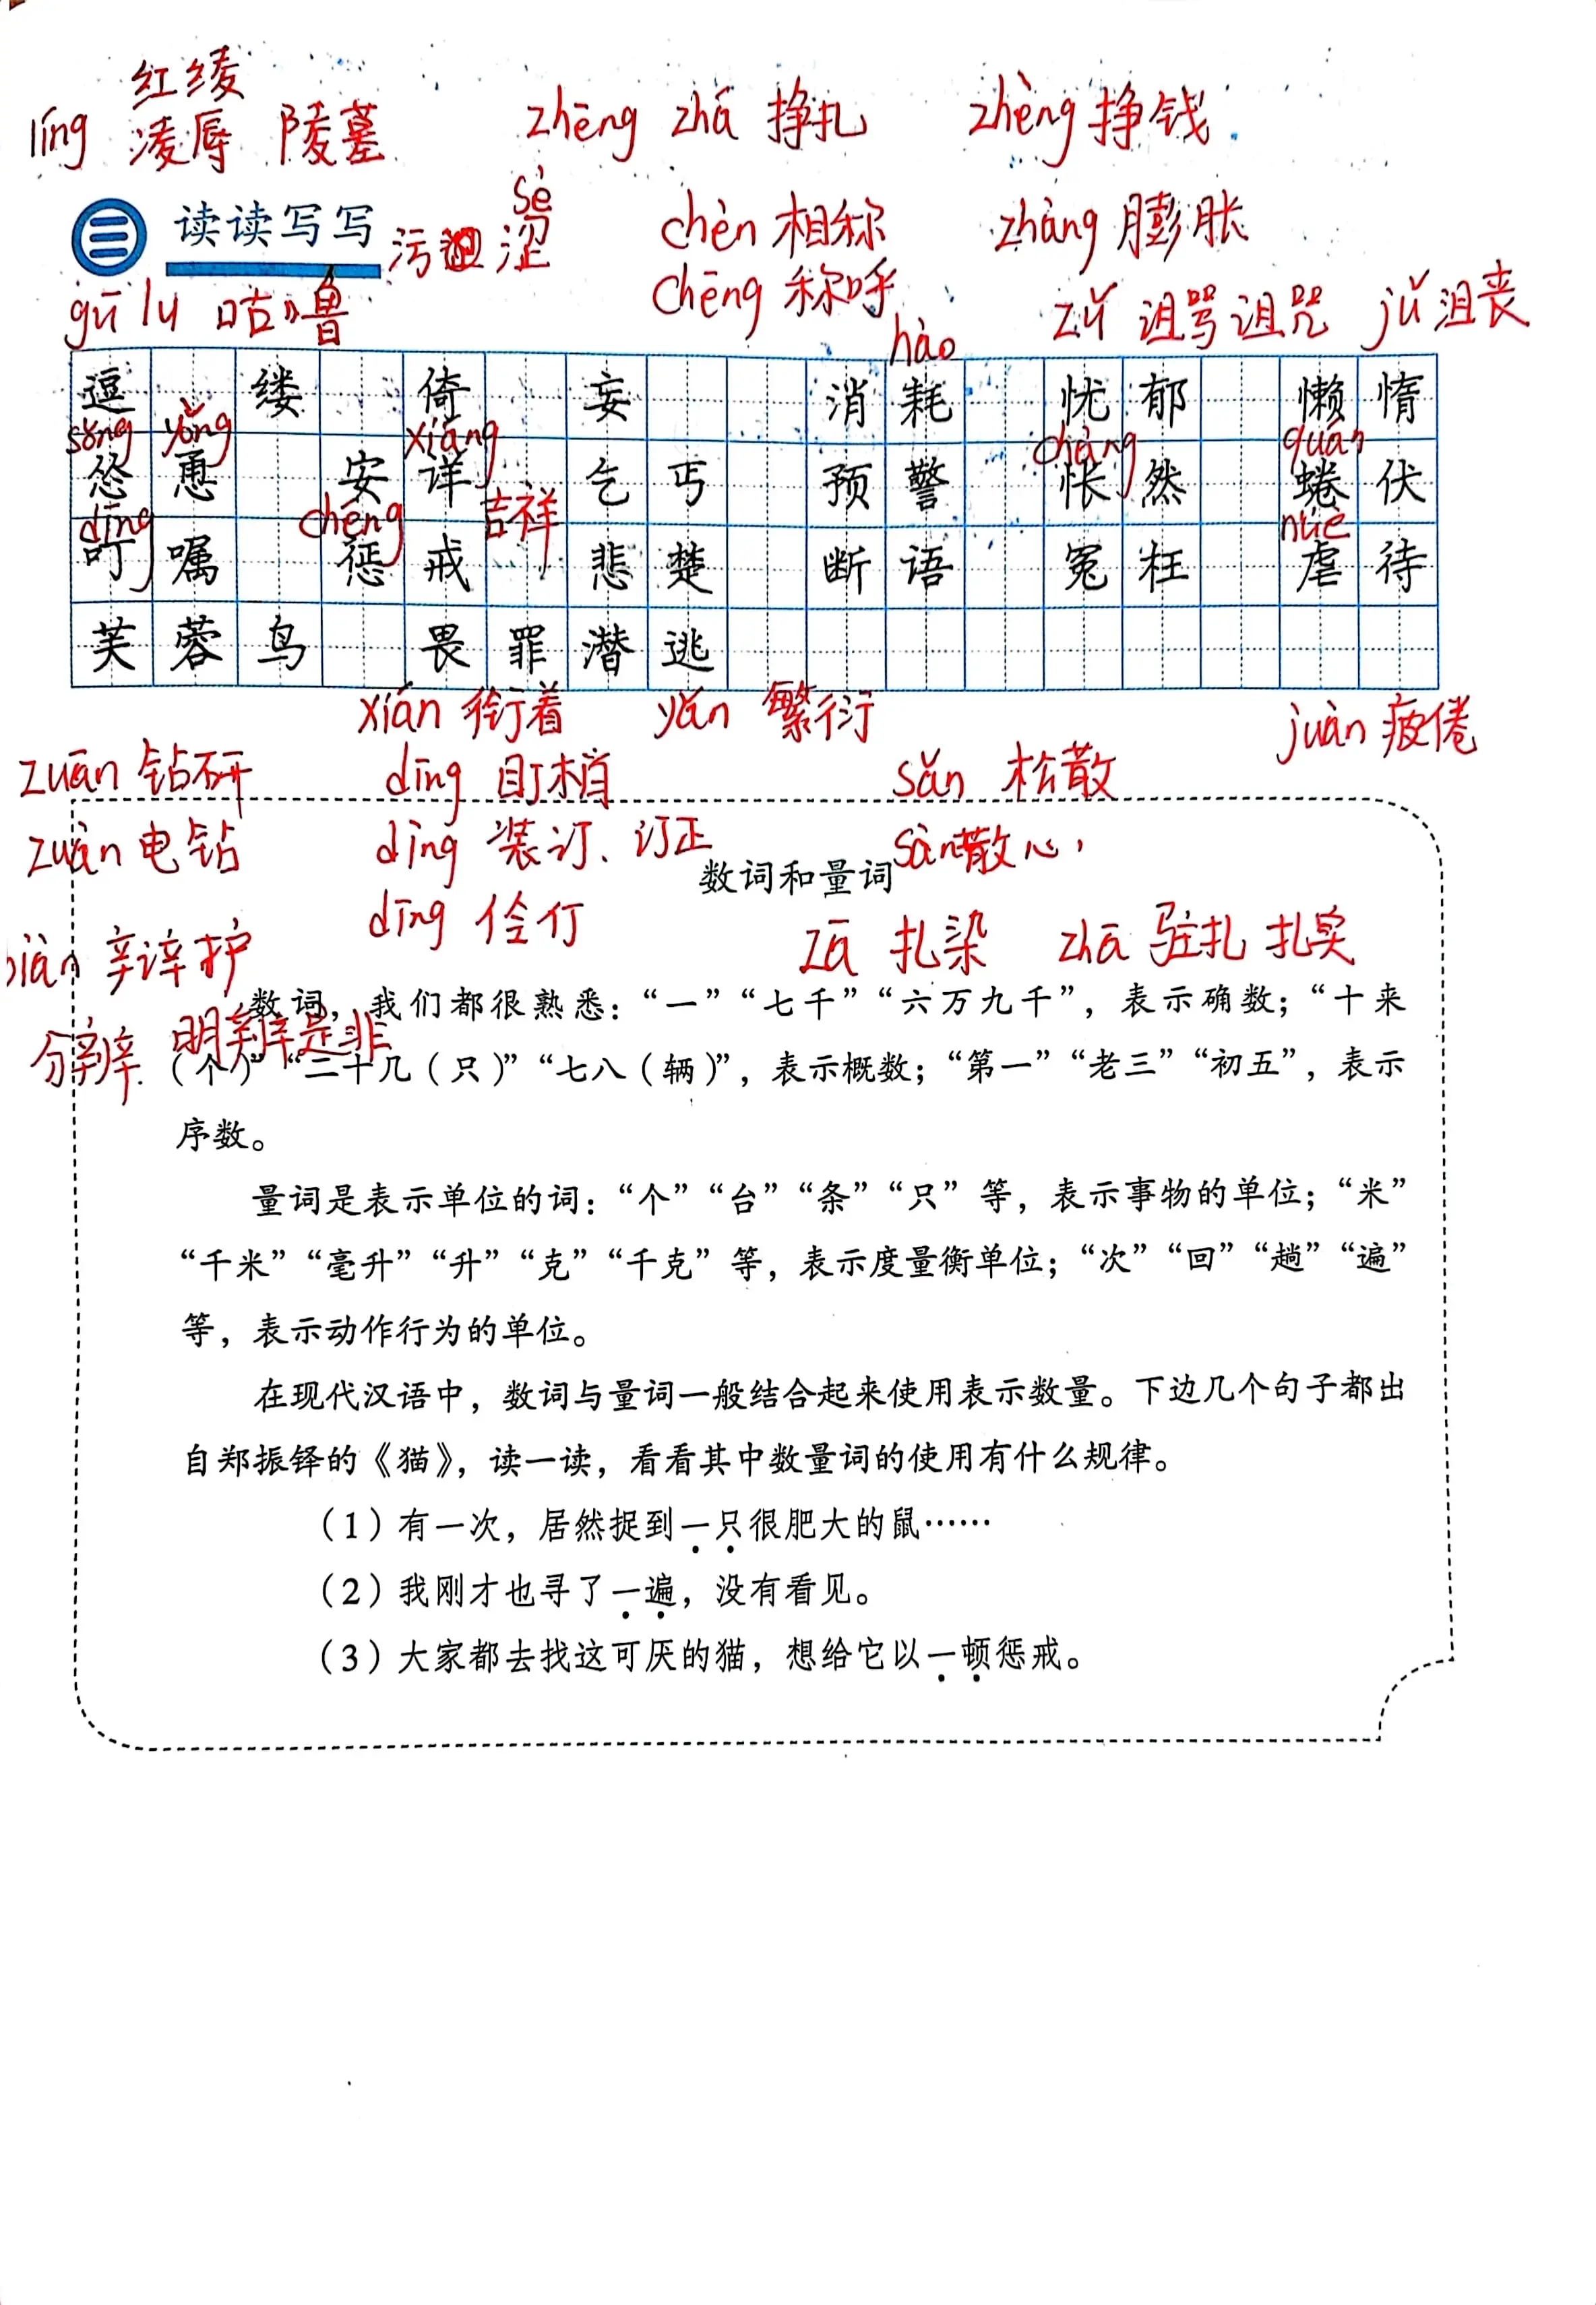 红绫
líng 凌辱 陵墓 zhēng zhá 挣扎 zhèng 挣钱
sè
读读写写 污 涩 chèn 相称 zhàng 膨胀
gū lu 咕噜 chēng 称呼 zǔ 诅骂 诅咒 jǔ 沮丧
hào
逗 缕 倚 妄 消耗 忧郁 懒惰
sǒng yǒng xiáng chàng quán
怂恿 安详 吉祥 乞丐 预警 怅然 蜷伏
dīng chéng nüè
叮嘱 惩戒 悲楚 断语 冤枉 虐待
芙蓉鸟 畏罪潜逃
xián 衔着 yǎn 繁衍 juàn 疲倦
zuān 钻研 dīng 盯梢 sǎn 松散
zuàn 电钻 dìng 装订、订正 sàn 散心
数词和量词
dīng 伶仃
biàn 辩护 zā 扎染 zhā 驻扎 扎实
数词，我们都很熟悉：“一”“七千”“六万九千”，表示确数；“十来
分辨 明辨是非
（个）”“二十几（只）”“七八（辆）”，表示概数；“第一”“老三”“初五”，表示
序数。
量词是表示单位的词：“个”“台”“条”“只”等，表示事物的单位；“米”
“千米”“毫升”“升”“克”“千克”等，表示度量衡单位；“次”“回”“趟”“遍”
等，表示动作行为的单位。
在现代汉语中，数词与量词一般结合起来使用表示数量。下边几个句子都出
自郑振铎的《猫》，读一读，看看其中数量词的使用有什么规律。
（1）有一次，居然捉到一只很肥大的鼠……
（2）我刚才也寻了一遍，没有看见。
（3）大家都去找这可厌的猫，想给它以一顿惩戒。